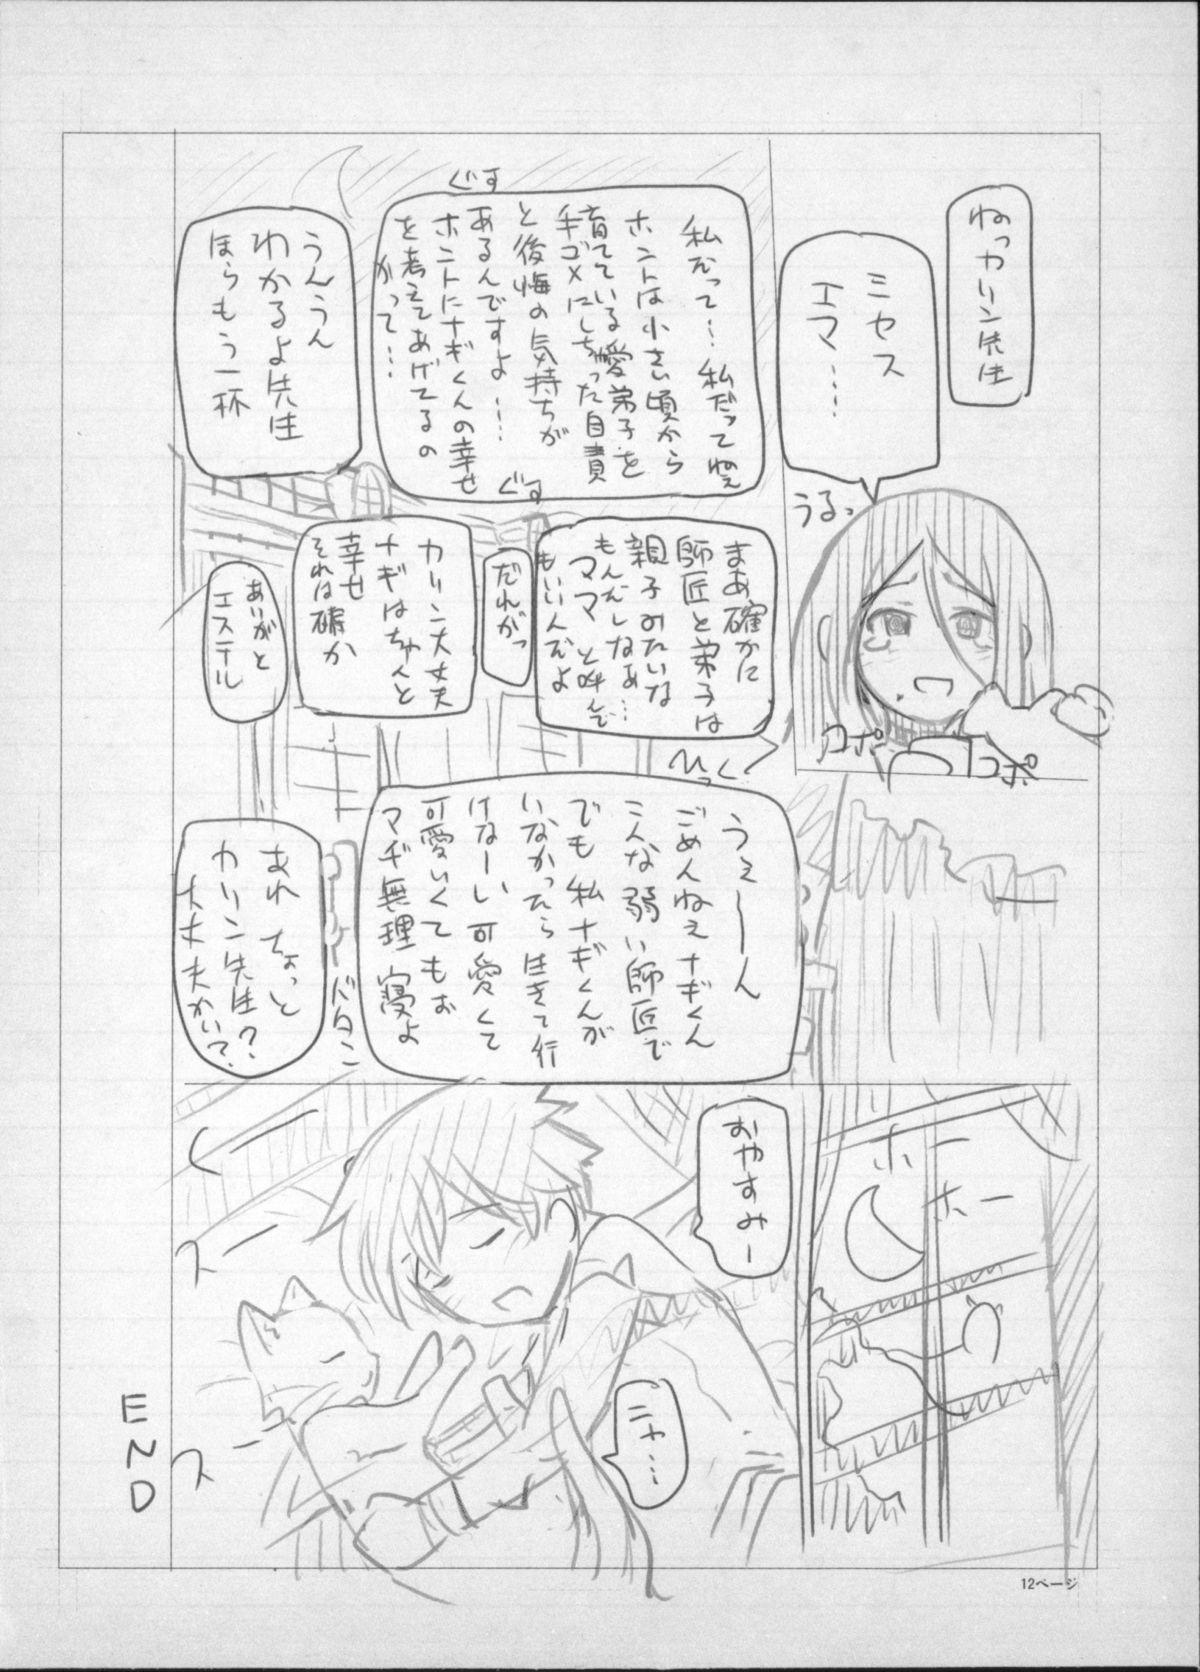 ねっカリン先生
ミセス
エマ……
うるっ
コポ
コポ
ぐす
私だって…私だってねぇ
ホントは小さい頃から
育てている愛弟子を
手ゴメにしちゃった自責
と後悔の気持ちが
あるんですよ……
ホントにナギくんの幸せ
を考えてあげてるの
かって…
ぐす
うんうん
わかるよ先生
ほらもう一杯
まあ確かに
師匠と弟子は
親子みたいな
もんだしなぁ…
ママと呼んで
もいいんだよ
だれがっ
カリン大丈夫
ナギはちゃんと
幸せ
それは確か
あいがと
エステル
ひっく
うぇーーん
ごめんねぇナギくん
こんな弱い師匠で
でも私ナギくんが
いなかったら生きて行
けなーい可愛くて
可愛いくてもぉ
マヂ無理寝よ
バタン
あれちょっと
カリン先生?
大丈夫かい?
ホー
ホー
おやすみー
くー
スー
ニャ…
スー
END
12ページ